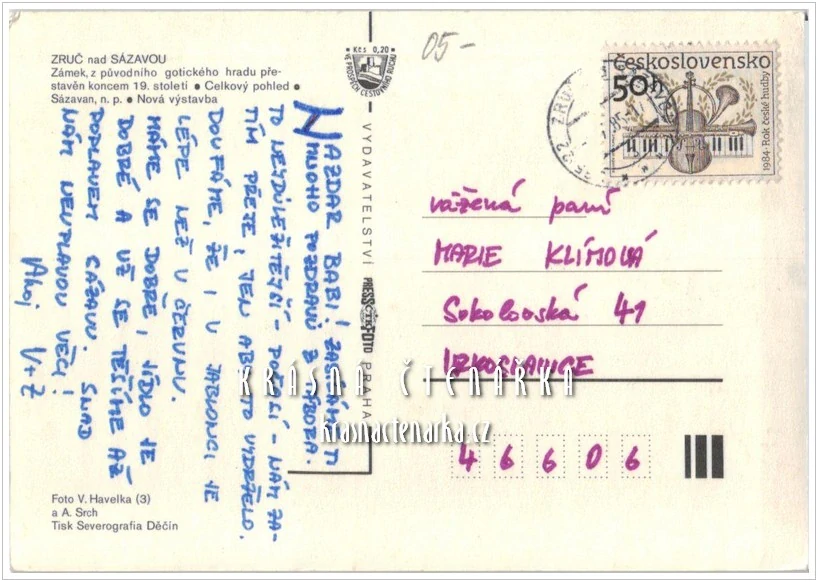 ZRUČ nad SÁZAVOU
Zámek, z původního gotického hradu pře-
stavěn koncem 19. století ● Celkový pohled ●
Sázavan, n. p. ● Nová výstavba
Kčs 0,20
VE PROSPĚCH CESTOVNÍHO RUCHU
05-
Československo
50h
1984 · Rok české hudby
NAZDAR BABI! ZASÍLÁME TI
MNOHO POZDRAVŮ Z TÁBORA.
TO NEJDŮLEŽITĚJŠÍ – POČASÍ – NÁM ZA-
TÍM PŘEJE, JEN ABY TO VYDRŽELO.
DOUFÁME, ŽE I V JABLONCI JE
LÉPE NEŽ V ČERVNU.
MÁME SE DOBŘE, JÍDLO JE
DOBRÉ A UŽ SE TĚŠÍME AŽ
POPLAVEM SÁZAVU. SNAD
NÁM NEUPLAVOU VĚCI!
Ahoj V+Z
VYDAVATELSTVÍ PRESSFOTO PRAHA
vážená paní
MARIE KLÍMOVÁ
Sokolovská 41
KRÁSNÁ ČTENÁŘKA
krasnactenarka.cz
46606
Foto V. Havelka (3)
a A. Srch
Tisk Severografia Děčín